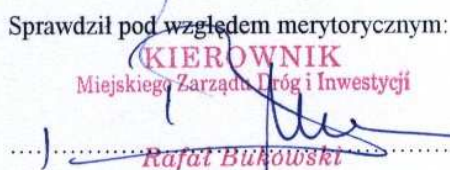 Sprawdził pod względem merytorycznym:
KIEROWNIK
Miejskiego Zarządu Dróg i Inwestycji
Rafał Bukowski